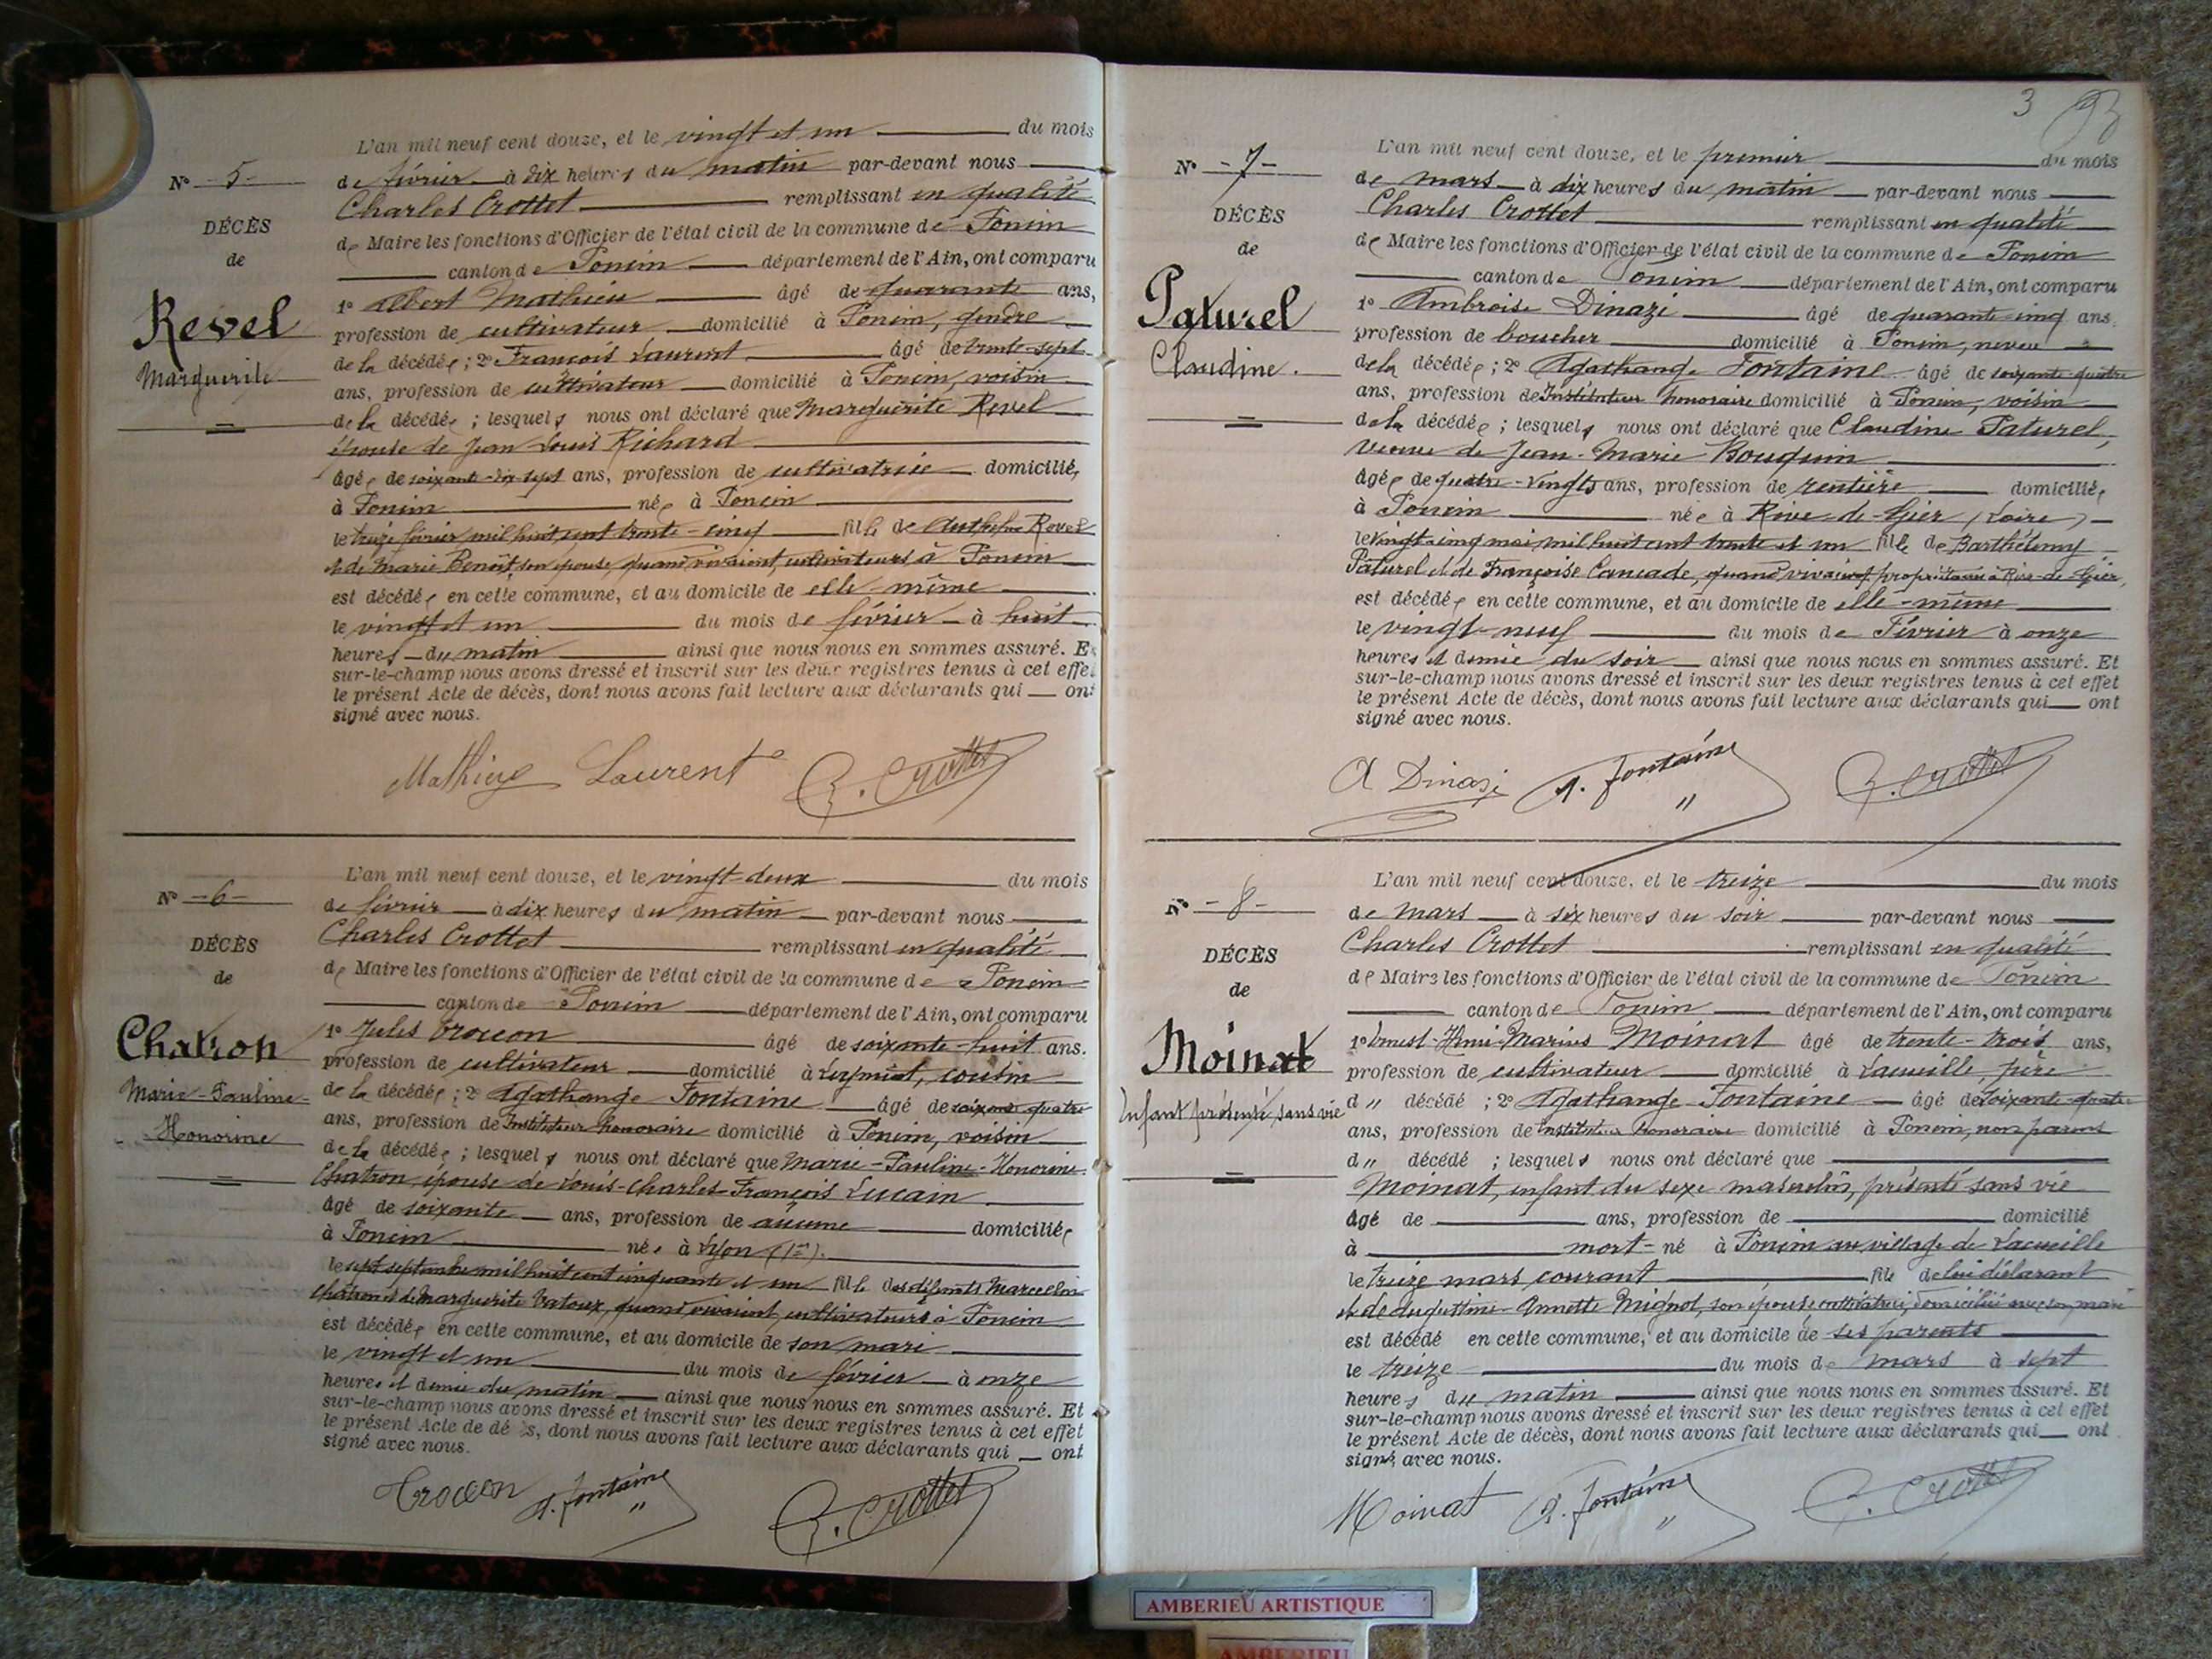 L'an mil neuf cent douze, et le vingt et un du mois
N° -5-
de février à dix heures du matin par-devant nous
Charles Crottet remplissant en qualité
DÉCÈS
de Maire les fonctions d'Officier de l'état civil de la commune de Poncin
de
canton de Poncin département de l'Ain, ont comparu
1° Albert Mathieu âgé de quarante ans,
Revel
profession de cultivateur domicilié à Poncin, gendre
de la décédée ; 2° François Laurent âgé de trente-sept
Marguerite
ans, profession de cultivateur domicilié à Poncin, voisin
de la décédée ; lesquels nous ont déclaré que Marguerite Revel
épouse de Jean Louis Richard
âgée de soixante-dix-sept ans, profession de cultivatrice domiciliée
à Poncin née à Poncin
le treize février mil huit cent trente-cinq fille de Anthelme Revel
et de Marie Benoît son épouse, quand vivaient, cultivateurs à Poncin
est décédée en cette commune, et au domicile de elle-même
le vingt et un du mois de février à huit
heures du matin ainsi que nous nous en sommes assuré. Et
sur-le-champ nous avons dressé et inscrit sur les deux registres tenus à cet effet
le présent Acte de décès, dont nous avons fait lecture aux déclarants qui ont
signé avec nous.
Mathieu Laurent C. Crottet
L'an mil neuf cent douze, et le vingt-deux du mois
N° -6-
de février à dix heures du matin par-devant nous
Charles Crottet remplissant en qualité
DÉCÈS
de Maire les fonctions d'Officier de l'état civil de la commune de Poncin
de
canton de Poncin département de l'Ain, ont comparu
1° Jules Croccon âgé de soixante-huit ans.
Chatron
profession de cultivateur domicilié à Leymiat, cousin
Marie-Pauline-
de la décédée ; 2° Agathange Fontaine âgé de soixante quatre
Honorine
ans, profession de Instituteur honoraire domicilié à Poncin, voisin
de la décédée ; lesquels nous ont déclaré que Marie-Pauline-Honorine
Chatron, épouse de Louis-Charles-François Lucain
âgé de soixante ans, profession de aucune domiciliée
à Poncin née à Lyon
le sept septembre mil huit cent cinquante et un fille des défunts Marcelin
Chatron et de Marguerite Vatoux, quand vivaient, cultivateurs à Poncin
est décédée en cette commune, et au domicile de son mari
le vingt et un du mois de février à onze
heures et demie du matin ainsi que nous nous en sommes assuré. Et
sur-le-champ nous avons dressé et inscrit sur les deux registres tenus à cet effet
le présent Acte de dé s, dont nous avons fait lecture aux déclarants qui ont
signé avec nous.
Croccon A. Fontaine C. Crottet
3 93
L'an mil neuf cent douze, et le premier du mois
N° -7-
de mars à dix heures du matin par-devant nous
Charles Crottet remplissant en qualité
DÉCÈS
de Maire les fonctions d'Officier de l'état civil de la commune de Poncin
de
canton de Poncin département de l'Ain, ont comparu
1° Ambroise Dinazi âgé de quarante-cinq ans.
Paturel
profession de boucher domicilié à Poncin, neveu
Claudine.
de la décédée ; 2° Agathange Fontaine âgé de soixante-quatre
ans, profession de Instituteur honoraire domicilié à Poncin, voisin
de la décédée ; lesquels nous ont déclaré que Claudine Paturel,
veuve de Jean-Marie Bouquin
âgée de quatre-vingts ans, profession de rentière domiciliée
à Poncin née à Rive-de-Gier (Loire)
le vingt-cinq mai mil huit cent trente et un fille de Barthélemy
Paturel et de Françoise Cancade, quand vivaient propriétaires à Rive-de-Gier,
est décédée en cette commune, et au domicile de elle-même
le vingt-neuf du mois de Février à onze
heures et demie du soir ainsi que nous nous en sommes assuré. Et
sur-le-champ nous avons dressé et inscrit sur les deux registres tenus à cet effet
le présent Acte de décès, dont nous avons fait lecture aux déclarants qui ont
signé avec nous.
A Dinazi A. Fontaine C. Crottet
L'an mil neuf cent douze, et le treize du mois
N° -8-
de mars à six heures du soir par-devant nous
Charles Crottet remplissant en qualité
DÉCÈS
de Maire les fonctions d'Officier de l'état civil de la commune de Poncin
de
canton de Poncin département de l'Ain, ont comparu
1° Ernest-Henri-Marius Moinat âgé de trente-trois ans,
Moinat
profession de cultivateur domicilié à Lacueille, père
Enfant présenté sans vie
d" décédé ; 2° Agathange Fontaine âgé de soixante-quatre
ans, profession de Instituteur honoraire domicilié à Poncin, non parent
d" décédé ; lesquels nous ont déclaré que
Moinat, enfant du sexe masculin, présenté sans vie
âgé de ans, profession de domicilié
à mort-né à Poncin au village de Lacueille
le treize mars courant fils de lui déclarant
et de Augustine-Annette Mignot, son épouse, cultivatrice, domiciliée avec son mari
est décédé en cette commune, et au domicile de ses parents
le treize du mois de mars à sept
heures du matin ainsi que nous nous en sommes assuré. Et
sur-le-champ nous avons dressé et inscrit sur les deux registres tenus à cet effet
le présent Acte de décès, dont nous avons fait lecture aux déclarants qui ont
signé avec nous.
Moinat A. Fontaine C. Crottet
AMBERIEU ARTISTIQUE
AMBERIEU